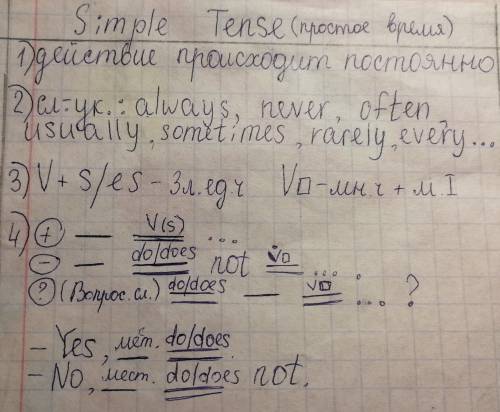 Simple Tense (простое время)
1) действие происходит постоянно
2) сл-ук.: always, never, often,
usually, sometimes, rarely, every...
3) V + s/es - 3л.ед.ч V□ - мн.ч + м. I
4) + — V(s) ...
- — do/does not V□ ....
? (Вопрос. сл.) do/does — V□ ... ?
- Yes, мест. do/does.
- No, мест. do/does not.